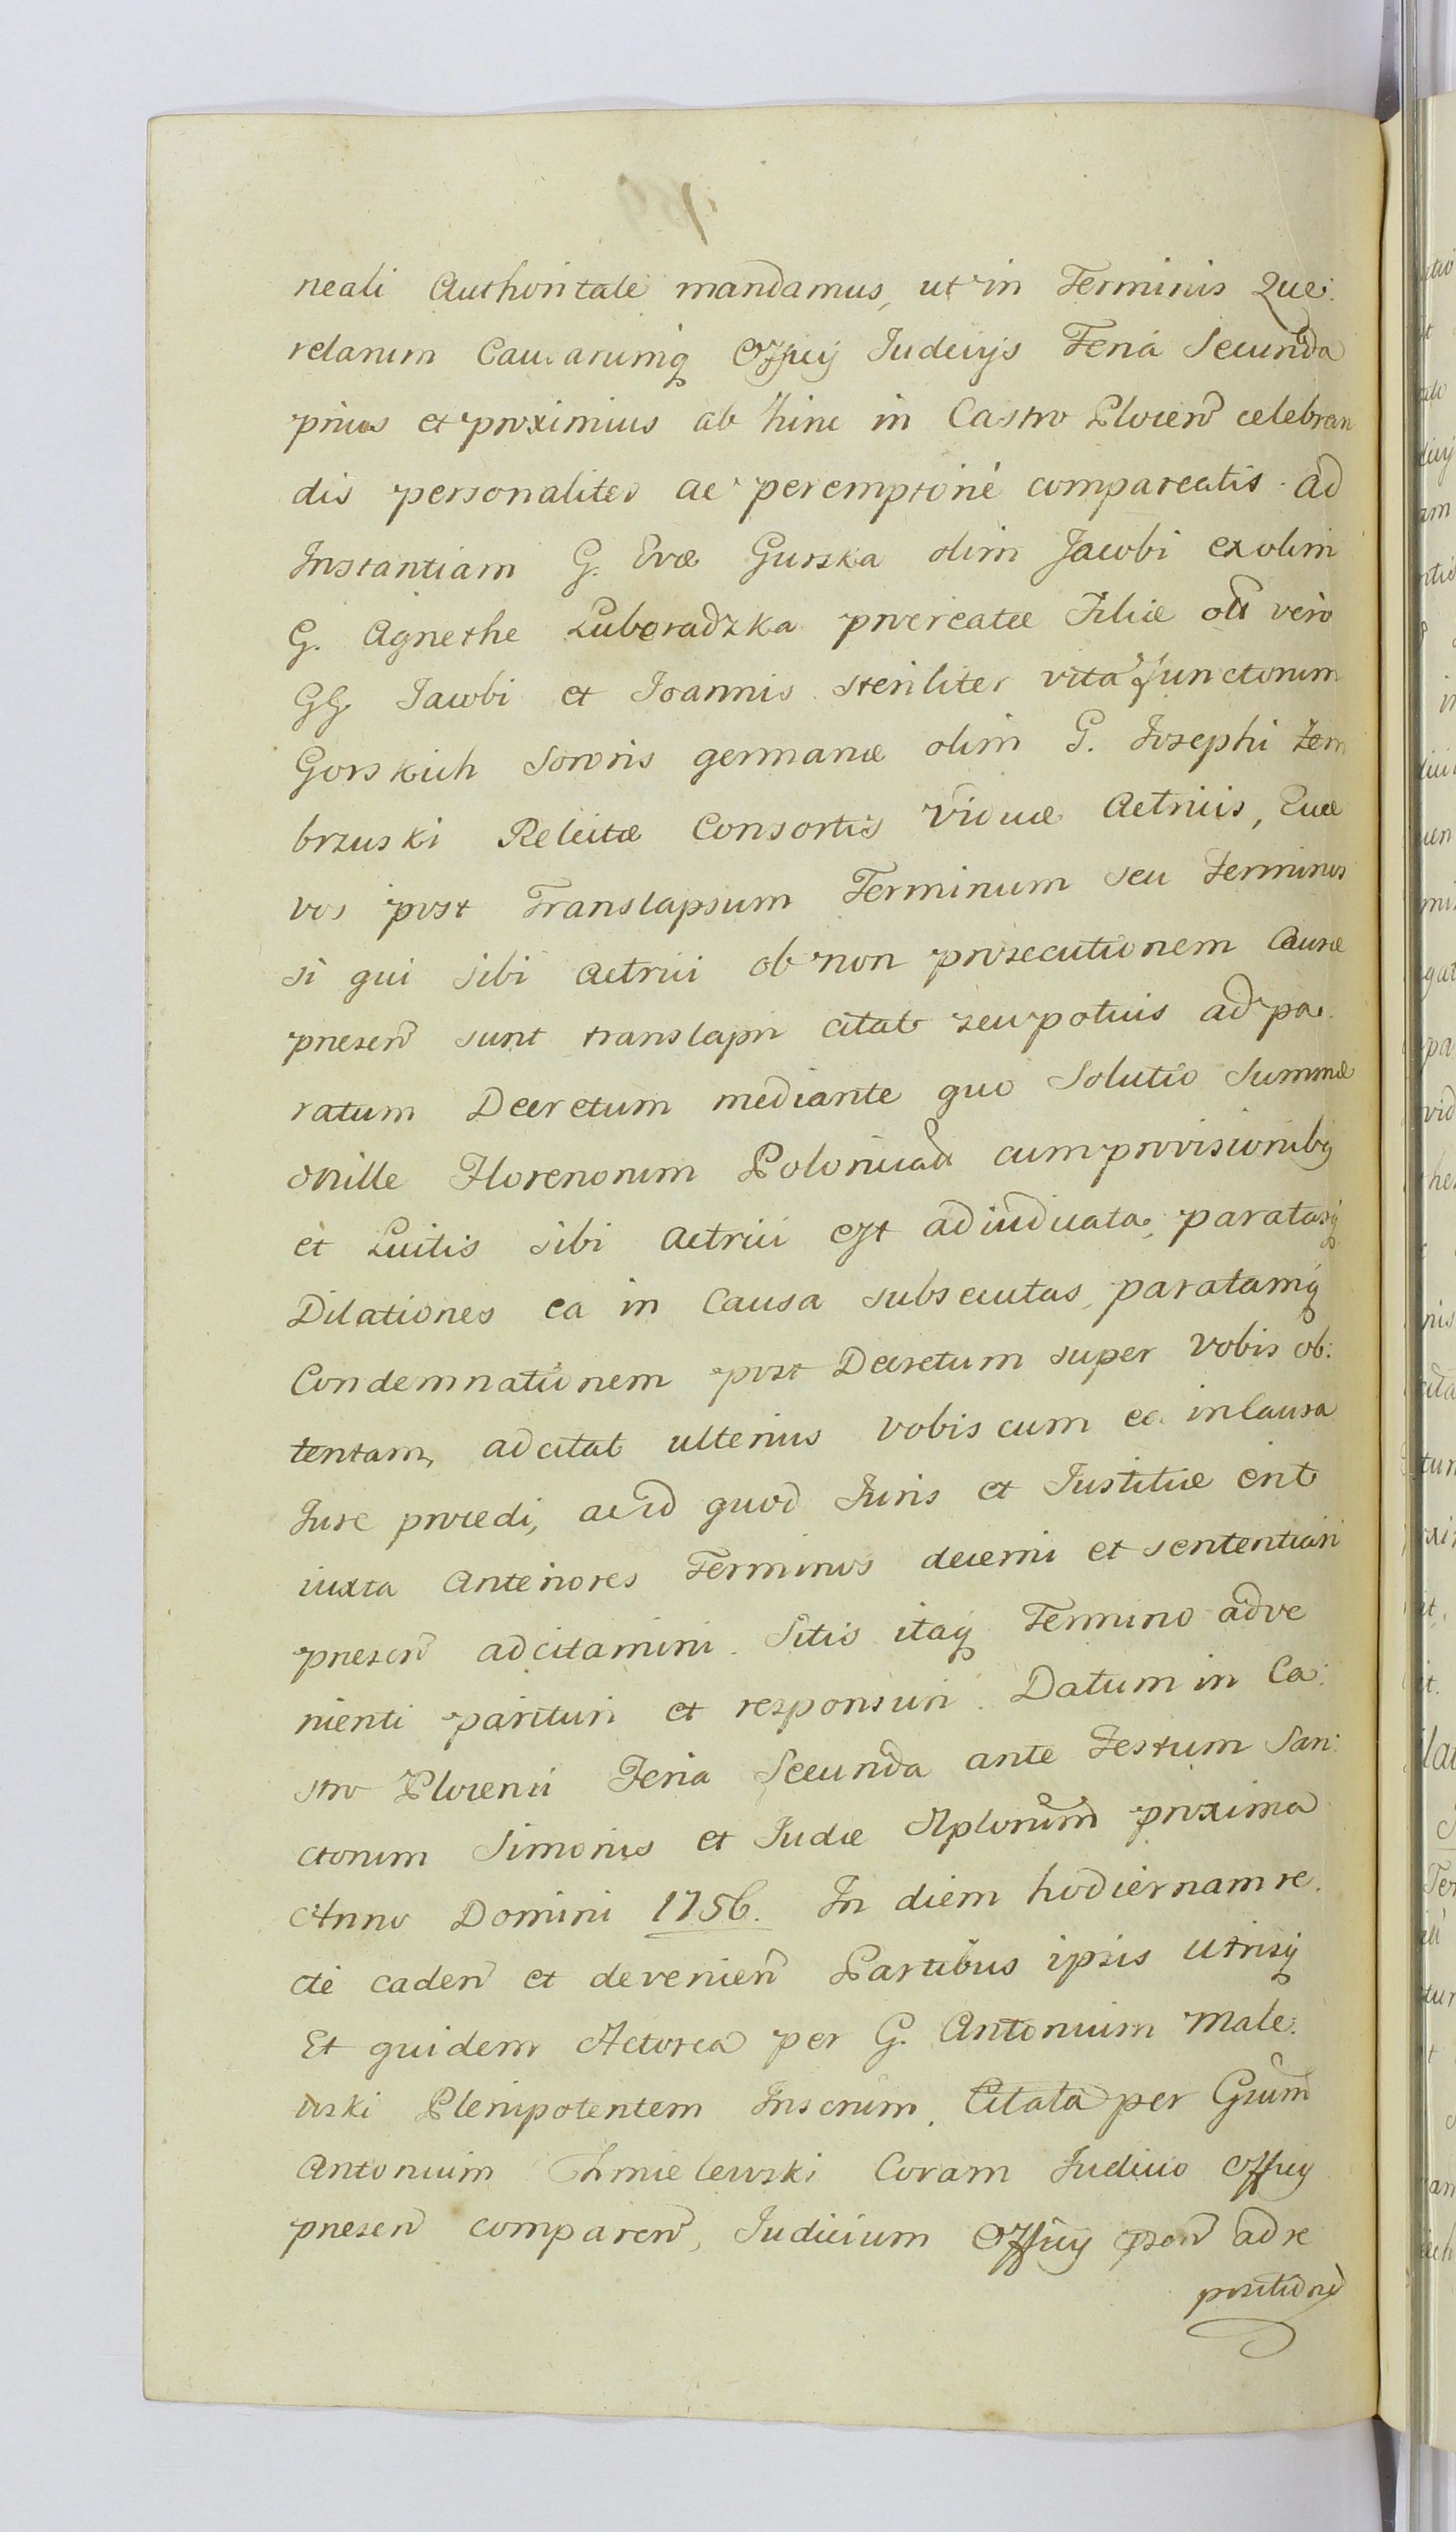 neali Authoritate mandamus, ut in Terminis Que:
relarum Causarumq Officij Iudicijs Feria Secunda
prius et proximius ab hinc in Castro Plocen celebran
dis personaliter ac peremptorié compareatis. Ad
Instantiam G. Evæ Gurska olim Jacobi ex olim
G. Agnethe Luboradzka procreatæ Filiæ olī vero
GG Iacobi et Ioannis steriliter vita functorum
Gorskich Sororis germanæ olim G. Josephi Zem
brzuski Relictæ Consortis Viduæ Actricis, Quæ
vos post Translapsum Terminum seu Terminos
si qui sibi Actrici ob non prosecutionem Causæ
presen sunt translapsi citat seu potius ad pa:
ratum Decretum mediante quo Solutio Summæ
Mille Florenorum Polonicali cum provisionibq
et Luitis sibi Actrici est adiudicata, paratasq
Dilationes ea in Causa subsecutas, paratamq
Condemnationem post Decretum super Vobis ob:
tentam, adcitat ulterius Vobis cum ea in Causa
Iure procedi, ac id quod Iuris et Iustitiæ erit
iuxta Anteriores Terminos decerni et sententiari
presen adcitamini. Sitis itaq Termino adve
nienti parituri et responsuri. Datum in Ca:
stro Plocensi Feria Secunda ante Festum San:
ctorum Simonis et Iudæ Aplorum proxima
Anno Domini 1756. In diem hodiernam re:
cte caden et devenien Partibus ipsis utrisq
Et quidem Actorea per G. Antonium Male:
wski Plenipotentem Inscrum, Citata per Gsum
Antonium Chmielewski Coram Iudicio Officij
presen comparen, Iudicium Officij psen ad re
positione